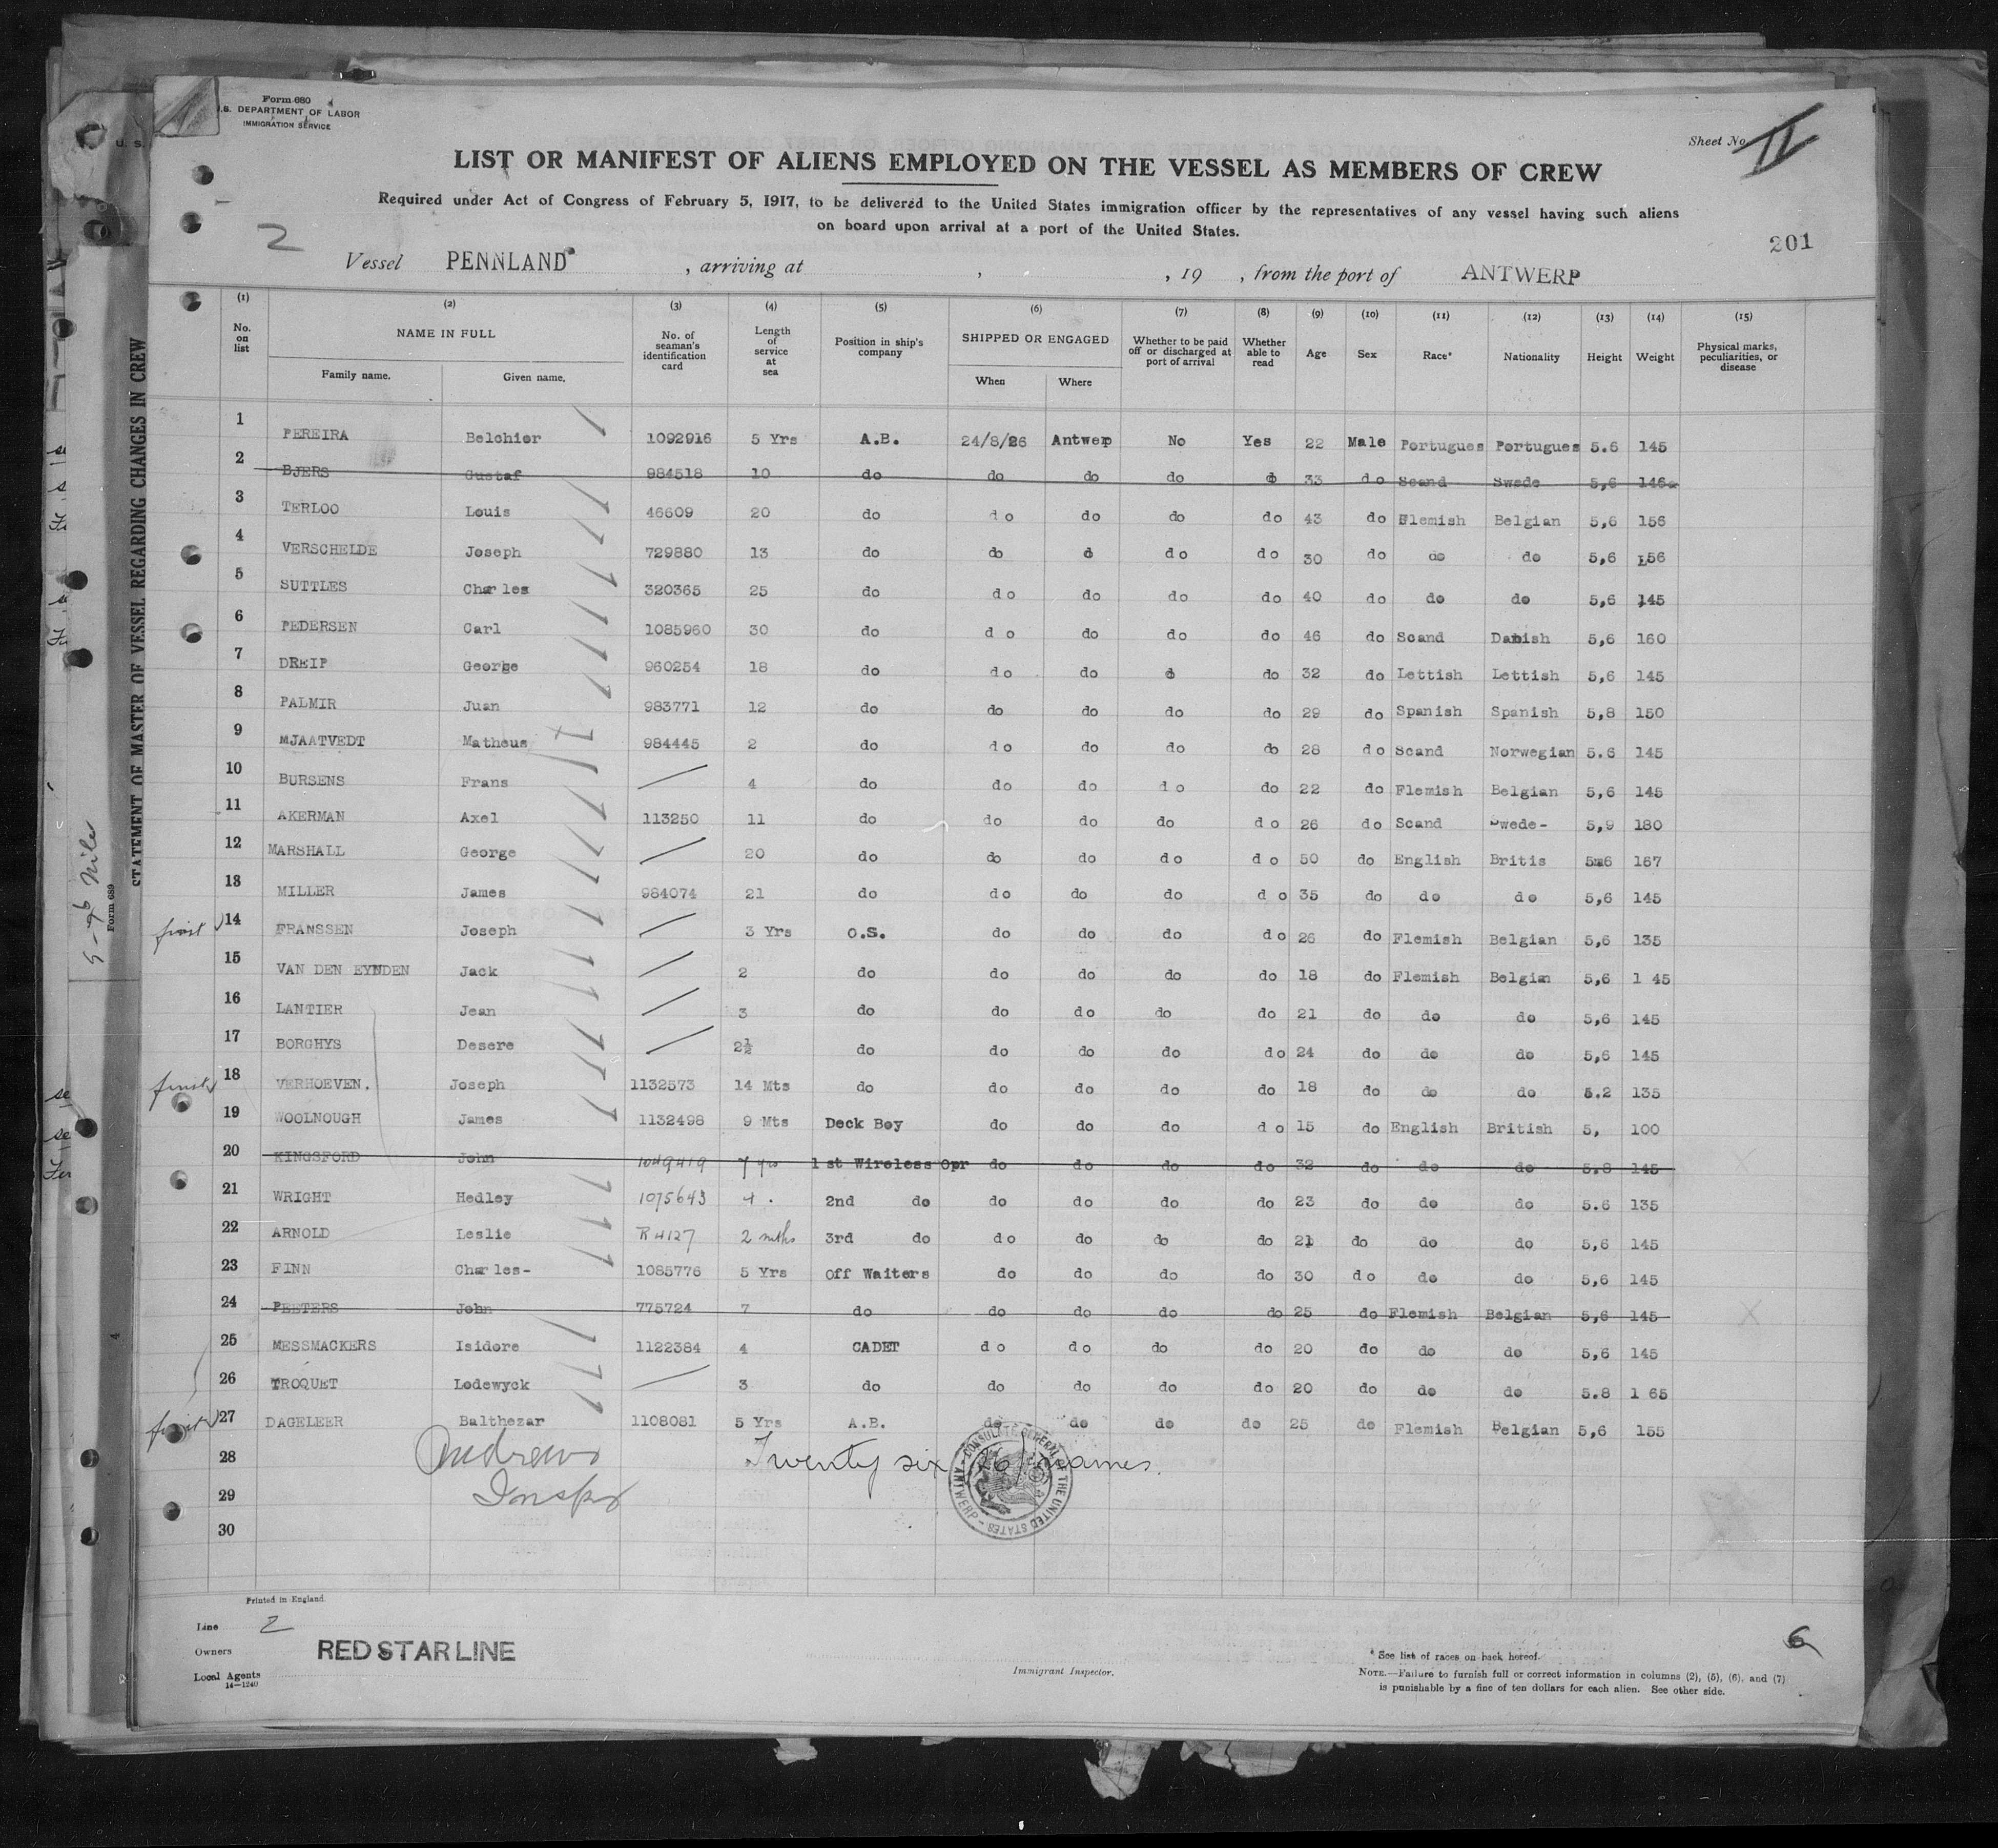 Form 680
U.S. DEPARTMENT OF LABOR
IMMIGRATION SERVICE
Sheet No. II
LIST OR MANIFEST OF ALIENS EMPLOYED ON THE VESSEL AS MEMBERS OF CREW
Required under Act of Congress of February 5, 1917, to be delivered to the United States immigration officer by the representatives of any vessel having such aliens
on board upon arrival at a port of the United States.
201
2
Vessel PENNLAND , arriving at , , 19 , from the port of ANTWERP
(1) (2) (3) (4) (5) (6) (7) (8) (9) (10) (11) (12) (13) (14) (15)
No. on list NAME IN FULL No. of seaman's identification card Length of service at sea Position in ship's company SHIPPED OR ENGAGED Whether to be paid off or discharged at port of arrival Whether able to read Age Sex Race* Nationality Height Weight Physical marks, peculiarities, or disease
Family name. Given name. When Where
1 PEREIRA Belchior 1092916 5 Yrs A.B. 24/8/26 Antwerp No Yes 22 Male Portugues Portugues 5.6 145
2 BJERS Gustaf 984518 10 do do do do do 33 do Scand Swede 5,6 146
3 TERLOO Louis 46609 20 do do do do do 43 do Flemish Belgian 5,6 156
4 VERSCHELDE Joseph 729880 13 do do d do do 30 do do do 5,6 156
5 SUTTLES Charles 320365 25 do do do do do 40 do do do 5,6 145
6 PEDERSEN Carl 1085960 30 do do do do do 46 do Scand Danish 5,6 160
7 DREIP George 960254 18 do do do d do 32 do Lettish Lettish 5,6 145
8 PALMIR Juan 983771 12 do do do do do 29 do Spanish Spanish 5,8 150
9 MJAATVEDT Matheus 984445 2 do do do do do 28 do Scand Norwegian 5.6 145
10 BURSENS Frans / 4 do do do do do 22 do Flemish Belgian 5,6 145
11 AKERMAN Axel 113250 11 do do do do do 26 do Scand Swede- 5,9 180
12 MARSHALL George / 20 do do do do do 50 do English Britis 5,6 167
13 MILLER James 984074 21 do do do do do 35 do do do 5,6 145
first 14 FRANSSEN Joseph / 3 Yrs O.S. do do do do 26 do Flemish Belgian 5,6 135
15 VAN DEN EYNDEN Jack / 2 do do do do do 18 do Flemish Belgian 5,6 1 45
16 LANTIER Jean / 3 do do do do do 21 do do do 5,6 145
17 BORGHYS Desere / 2½ do do do do do 24 do do do 5,6 145
first 18 VERHOEVEN. Joseph 1132573 14 Mts do do do do do 18 do do do 5.2 135
19 WOOLNOUGH James 1132498 9 Mts Deck Boy do do do do 15 do English British 5, 100
20 KINGSFORD John 1049419 7 yrs 1 st Wireless Opr do do do do 32 do do do 5.8 145
21 WRIGHT Hedley 1075643 4 . 2nd do do do do do 23 do do do 5.6 135
22 ARNOLD Leslie R4127 2 mths 3rd do do do do do 21 do do do 5,6 145
23 FINN Charles- 1085776 5 Yrs Off Waiters do do do do 30 do do do 5,6 145
24 PEETERS John 775724 7 do do do do do 25 do Flemish Belgian 5,6 145
25 MESSMACKERS Isidore 1122384 4 CADET do do do do 20 do do do 5,6 145
26 TROQUET Lodewyck / 3 do do do do do 20 do do do 5.8 1 65
first 27 DAGELEER Balthezar 1108081 5 Yrs A.B. do do do do 25 do Flemish Belgian 5,6 155
28 Andrews Twenty six (26) names.
29 Inspr
30
CONSULATE GENERAL OF THE UNITED STATES - ANTWERP -
Printed in England.
Line 2
Owners RED STAR LINE
Local Agents
14—1240
Immigrant Inspector.
6
* See list of races on back hereof.
NOTE.—Failure to furnish full or correct information in columns (2), (5), (6), and (7)
is punishable by a fine of ten dollars for each alien. See other side.
STATEMENT OF MASTER OF VESSEL REGARDING CHANGES IN CREW
Form 689
U. S.